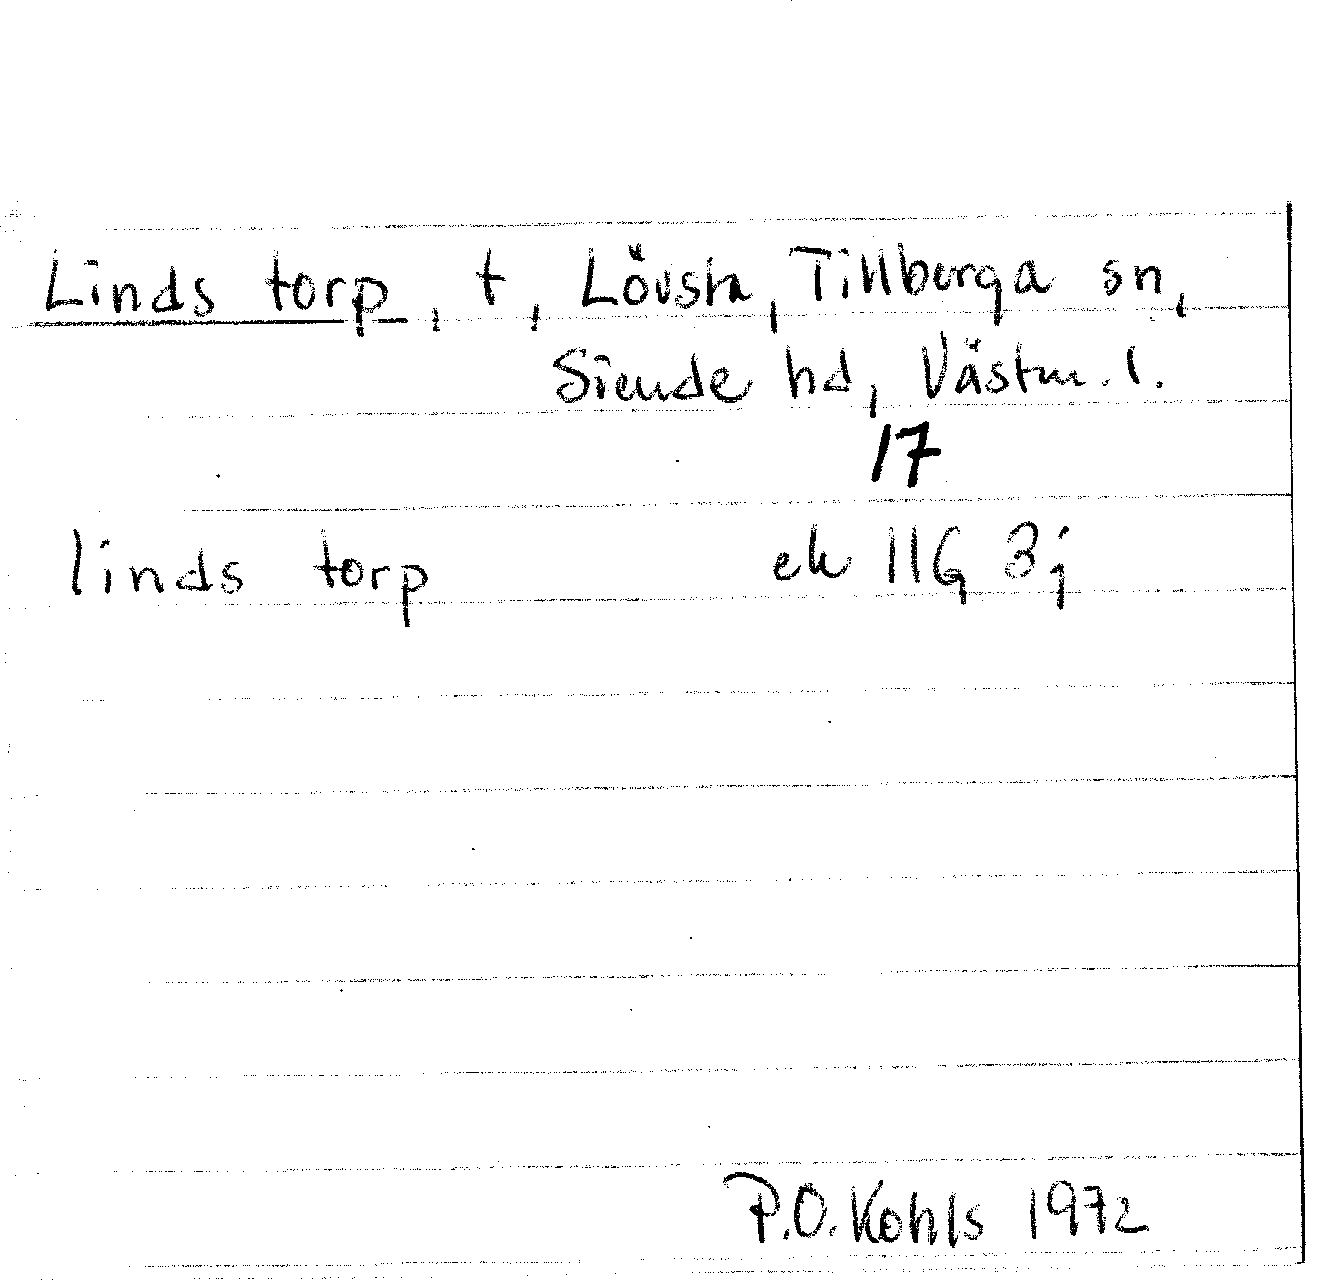 Linds torp, t, Lövsta, Tillberga sn,
Siende hd, Västm. l.
17
linds torp ek 11G 3j
P.O. Kohls 1972